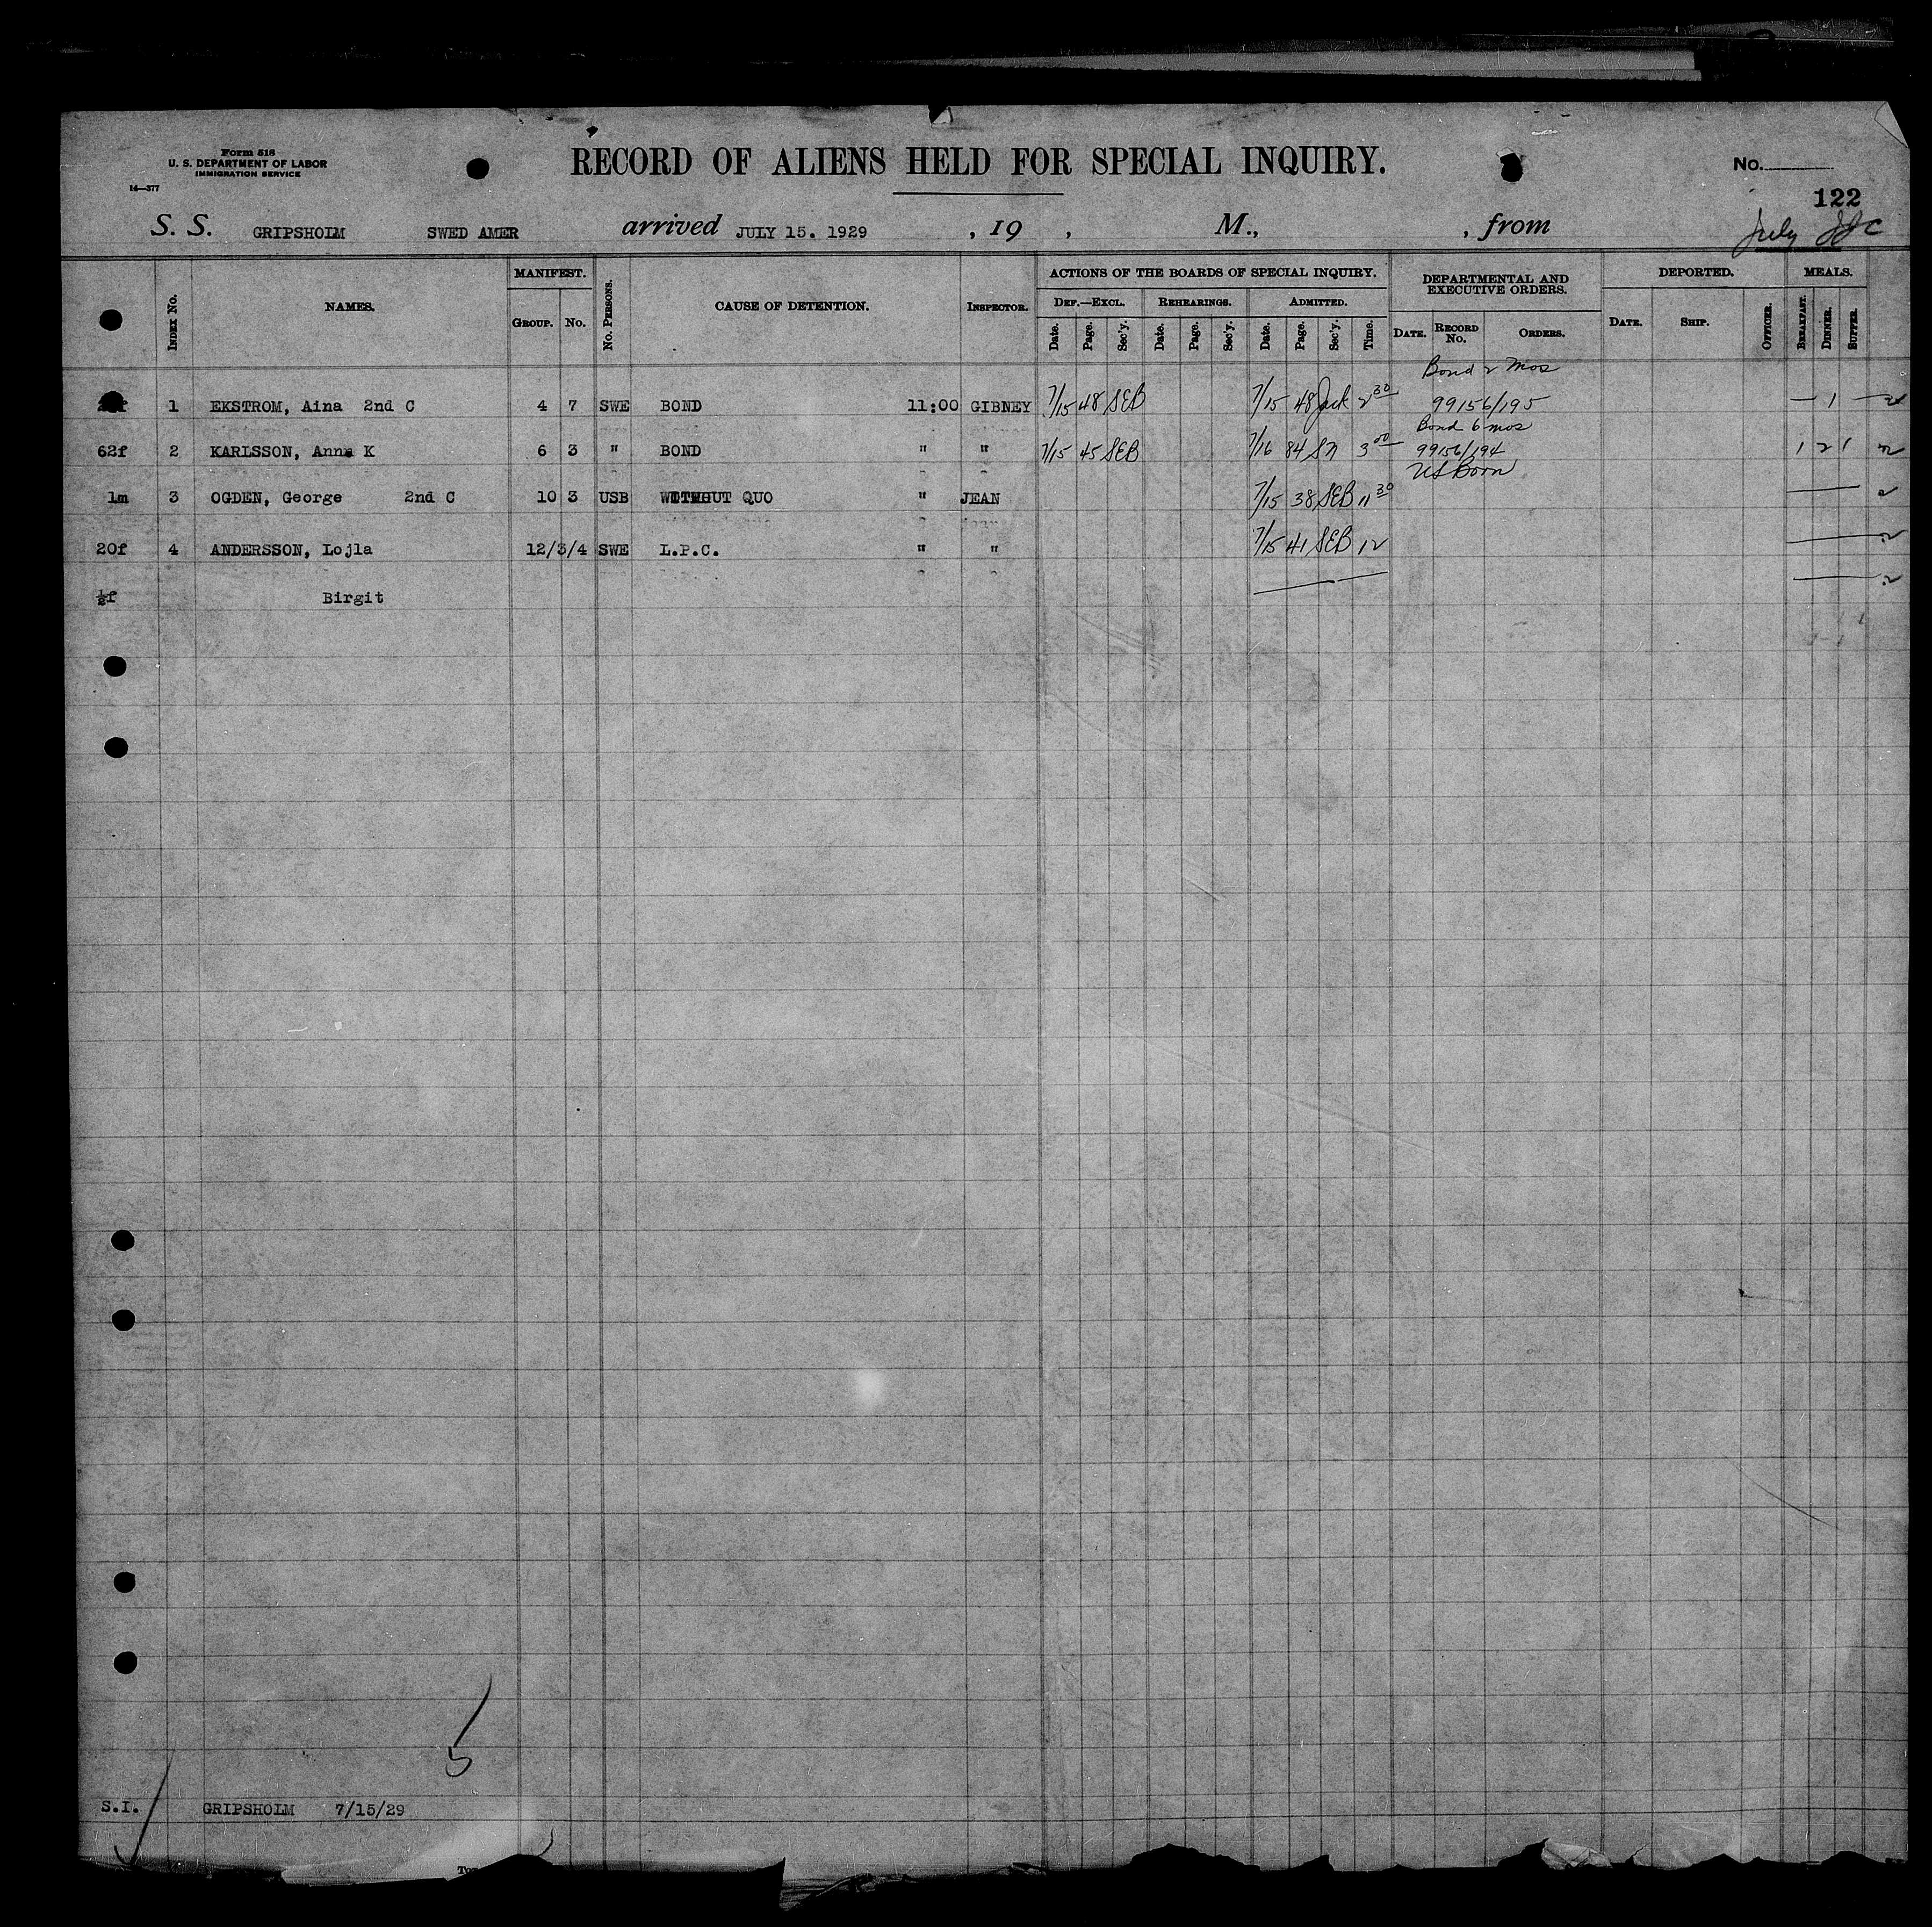 Form 518
U. S. DEPARTMENT OF LABOR
IMMIGRATION SERVICE
14—377
RECORD OF ALIENS HELD FOR SPECIAL INQUIRY.
No.
122
S. S. GRIPSHOLM SWED AMER arrived JULY 15. 1929 , 19 , M., , from
July
INDEX No.
NAMES.
MANIFEST.
GROUP. No.
No. PERSONS.
CAUSE OF DETENTION.
INSPECTOR.
ACTIONS OF THE BOARDS OF SPECIAL INQUIRY.
DEF.—EXCL. REHEARINGS. ADMITTED.
Date. Page. Sec'y. Date. Page. Sec'y. Date. Page. Sec'y. Time.
DEPARTMENTAL AND EXECUTIVE ORDERS.
DATE. RECORD No. ORDERS.
DEPORTED.
DATE. SHIP. OFFICER.
MEALS.
BREAKFAST. DINNER. SUPPER.
Bond 2 Mos
1 EKSTROM, Aina 2nd C 4 7 SWE BOND 11:00 GIBNEY 7/15 48 SEB 7/15 48 Jack 2 30 99156/195 — 1 —
Bond 6 mos
62f 2 KARLSSON, Anna K 6 3 " BOND " " 7/15 45 SEB 7/16 84 3 00 99156/194 1 2 1
US Born
1m 3 OGDEN, George 2nd C 10 3 USB WITHOUT QUO " JEAN 7/15 38 SEB 11 30
20f 4 ANDERSSON, Lojla 12/3/4 SWE L.P.C. " " 7/15 41 SEB 12
½f Birgit
5
S.I. GRIPSHOLM 7/15/29